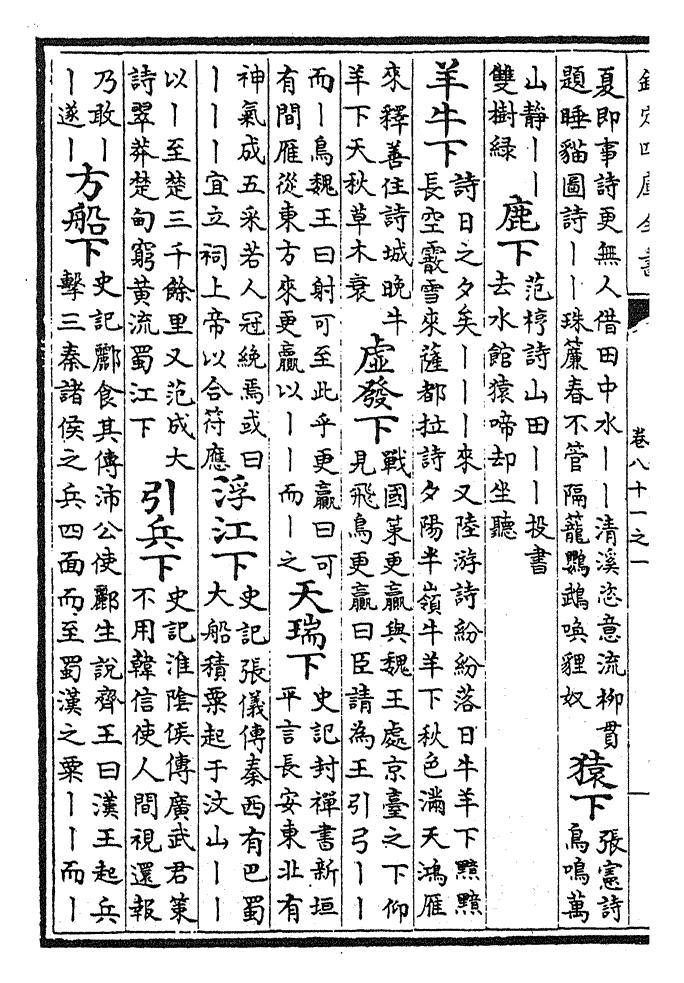 欽定四庫全書 卷八十一之一
夏即事詩更無人借田中水丨丨清溪恣意流柳貫
題睡貓圖詩丨丨珠簾春不管隔籠鸚鵡喚貍奴
猿下
張憲詩
鳥鳴萬
山靜丨丨
雙樹綠
鹿下
范梈詩山田丨丨投書
去水館猿啼却坐聽
羊牛下
詩日之夕矣丨丨丨來又陸游詩紛紛落日牛羊下黯黯
長空霰雪來薩都拉詩夕陽半嶺牛羊下秋色滿天鴻雁
來釋善住詩城晚牛
羊下天秋草木衰
虛發下
戰國策更羸與魏王處京臺之下仰
見飛鳥更羸曰臣請為王引弓丨丨
而丨鳥魏王曰射可至此乎更羸曰可
有間雁從東方來更羸以丨丨而丨之
天瑞下
史記封禪書新垣
平言長安東北有
神氣成五采若人冠絻焉或曰
丨丨丨宜立祠上帝以合符應
浮江下
史記張儀傳秦西有巴蜀
大船積粟起于汶山丨丨
以丨至楚三千餘里又范成大
詩翠莽楚甸窮黃流蜀江下
引兵下
史記淮陰侯傳廣武君策
不用韓信使人間視還報
乃敢丨
丨遂丨
方船下
史記酈食其傳沛公使酈生說齊王曰漢王起兵
擊三秦諸侯之兵四面而至蜀漢之粟丨丨而丨